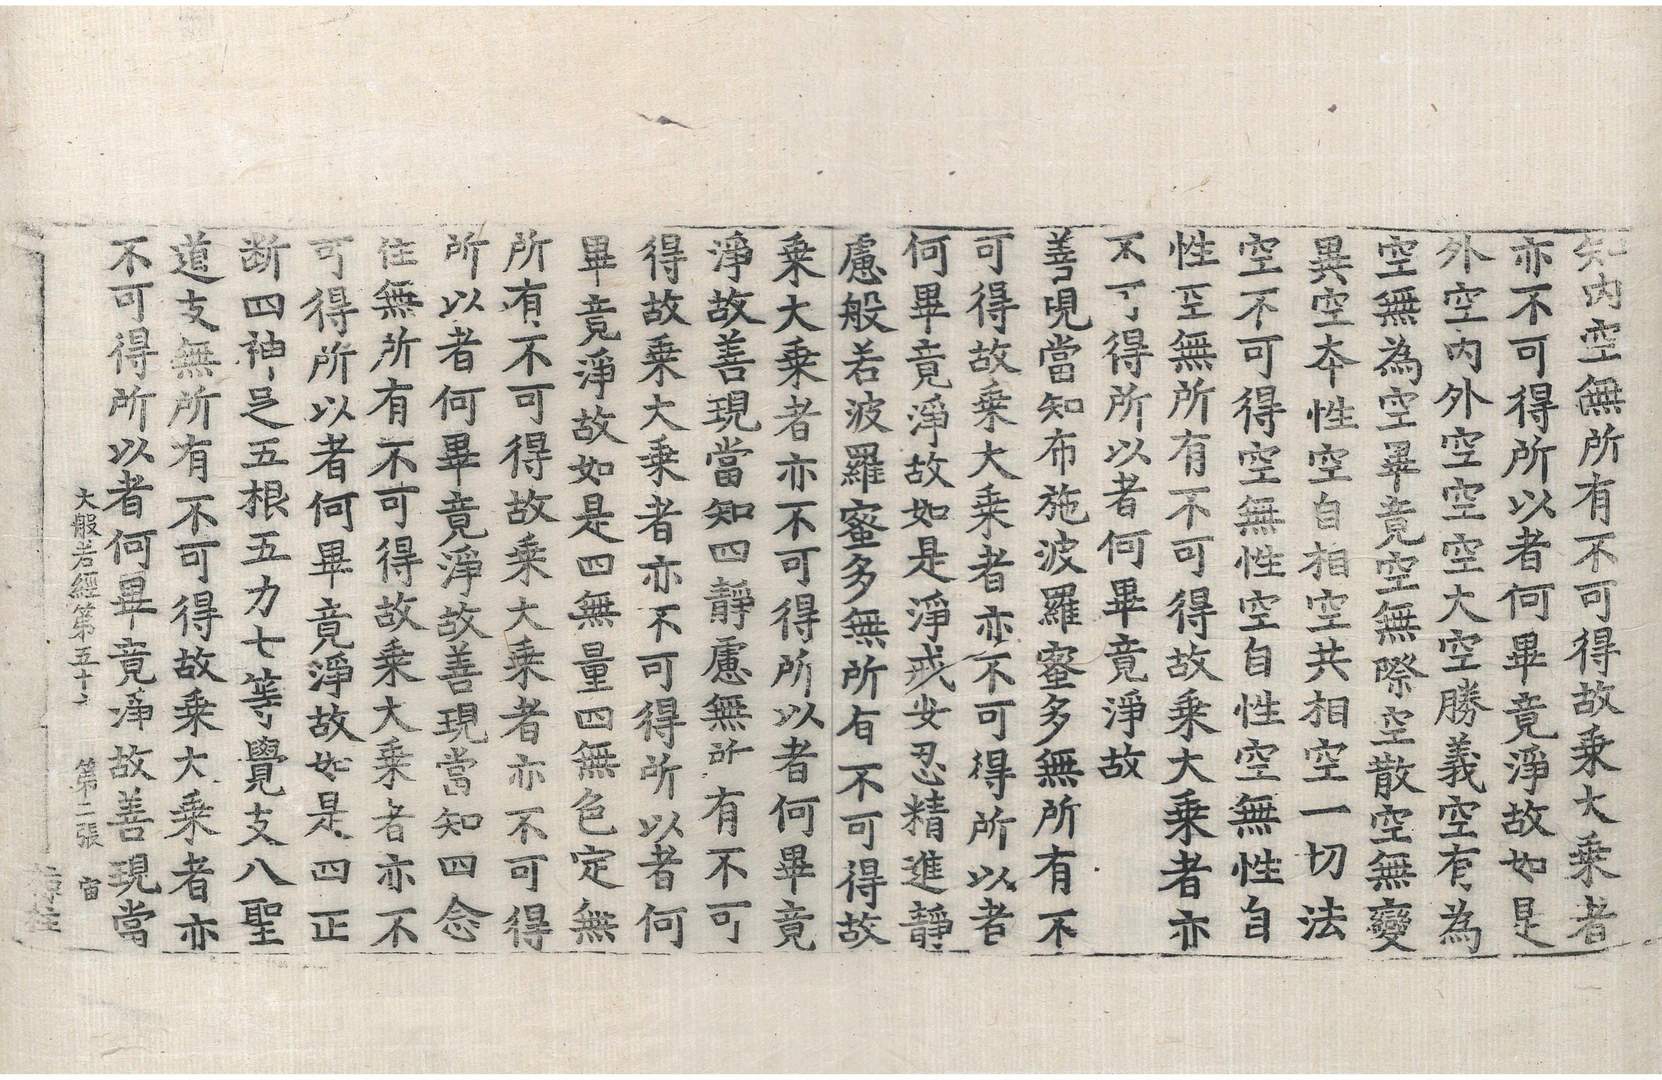 知内空無所有不可得故乗大乗者
亦不可得所以者何畢竟淨故如是
外空内外空空空大空勝義空有為
空無為空畢竟空無際空散空無變
異空本性空自相空共相空一切法
空不可得空無性空自性空無性自
性空無所有不可得故乗大乗者亦
不可得所以者何畢竟淨故
善現當知布施波羅蜜多無所有不
可得故乗大乗者亦不可得所以者
何畢竟淨故如是淨戒安忍精進靜
慮般若波羅蜜多無所有不可得故
乗大乗者亦不可得所以者何畢竟
淨故善現當知四靜慮無所有不可
得故乗大乗者亦不可得所以者何
畢竟淨故如是四無量四無色定無
所有不可得故乗大乗者亦不可得
所以者何畢竟淨故善現當知四念
住無所有不可得故乗大乗者亦不
可得所以者何畢竟淨故如是四正
断四神足五根五力七等覺支八聖
道支無所有不可得故乗大乗者亦
不可得所以者何畢竟淨故善現當
大般若經第五十 第二張 宙